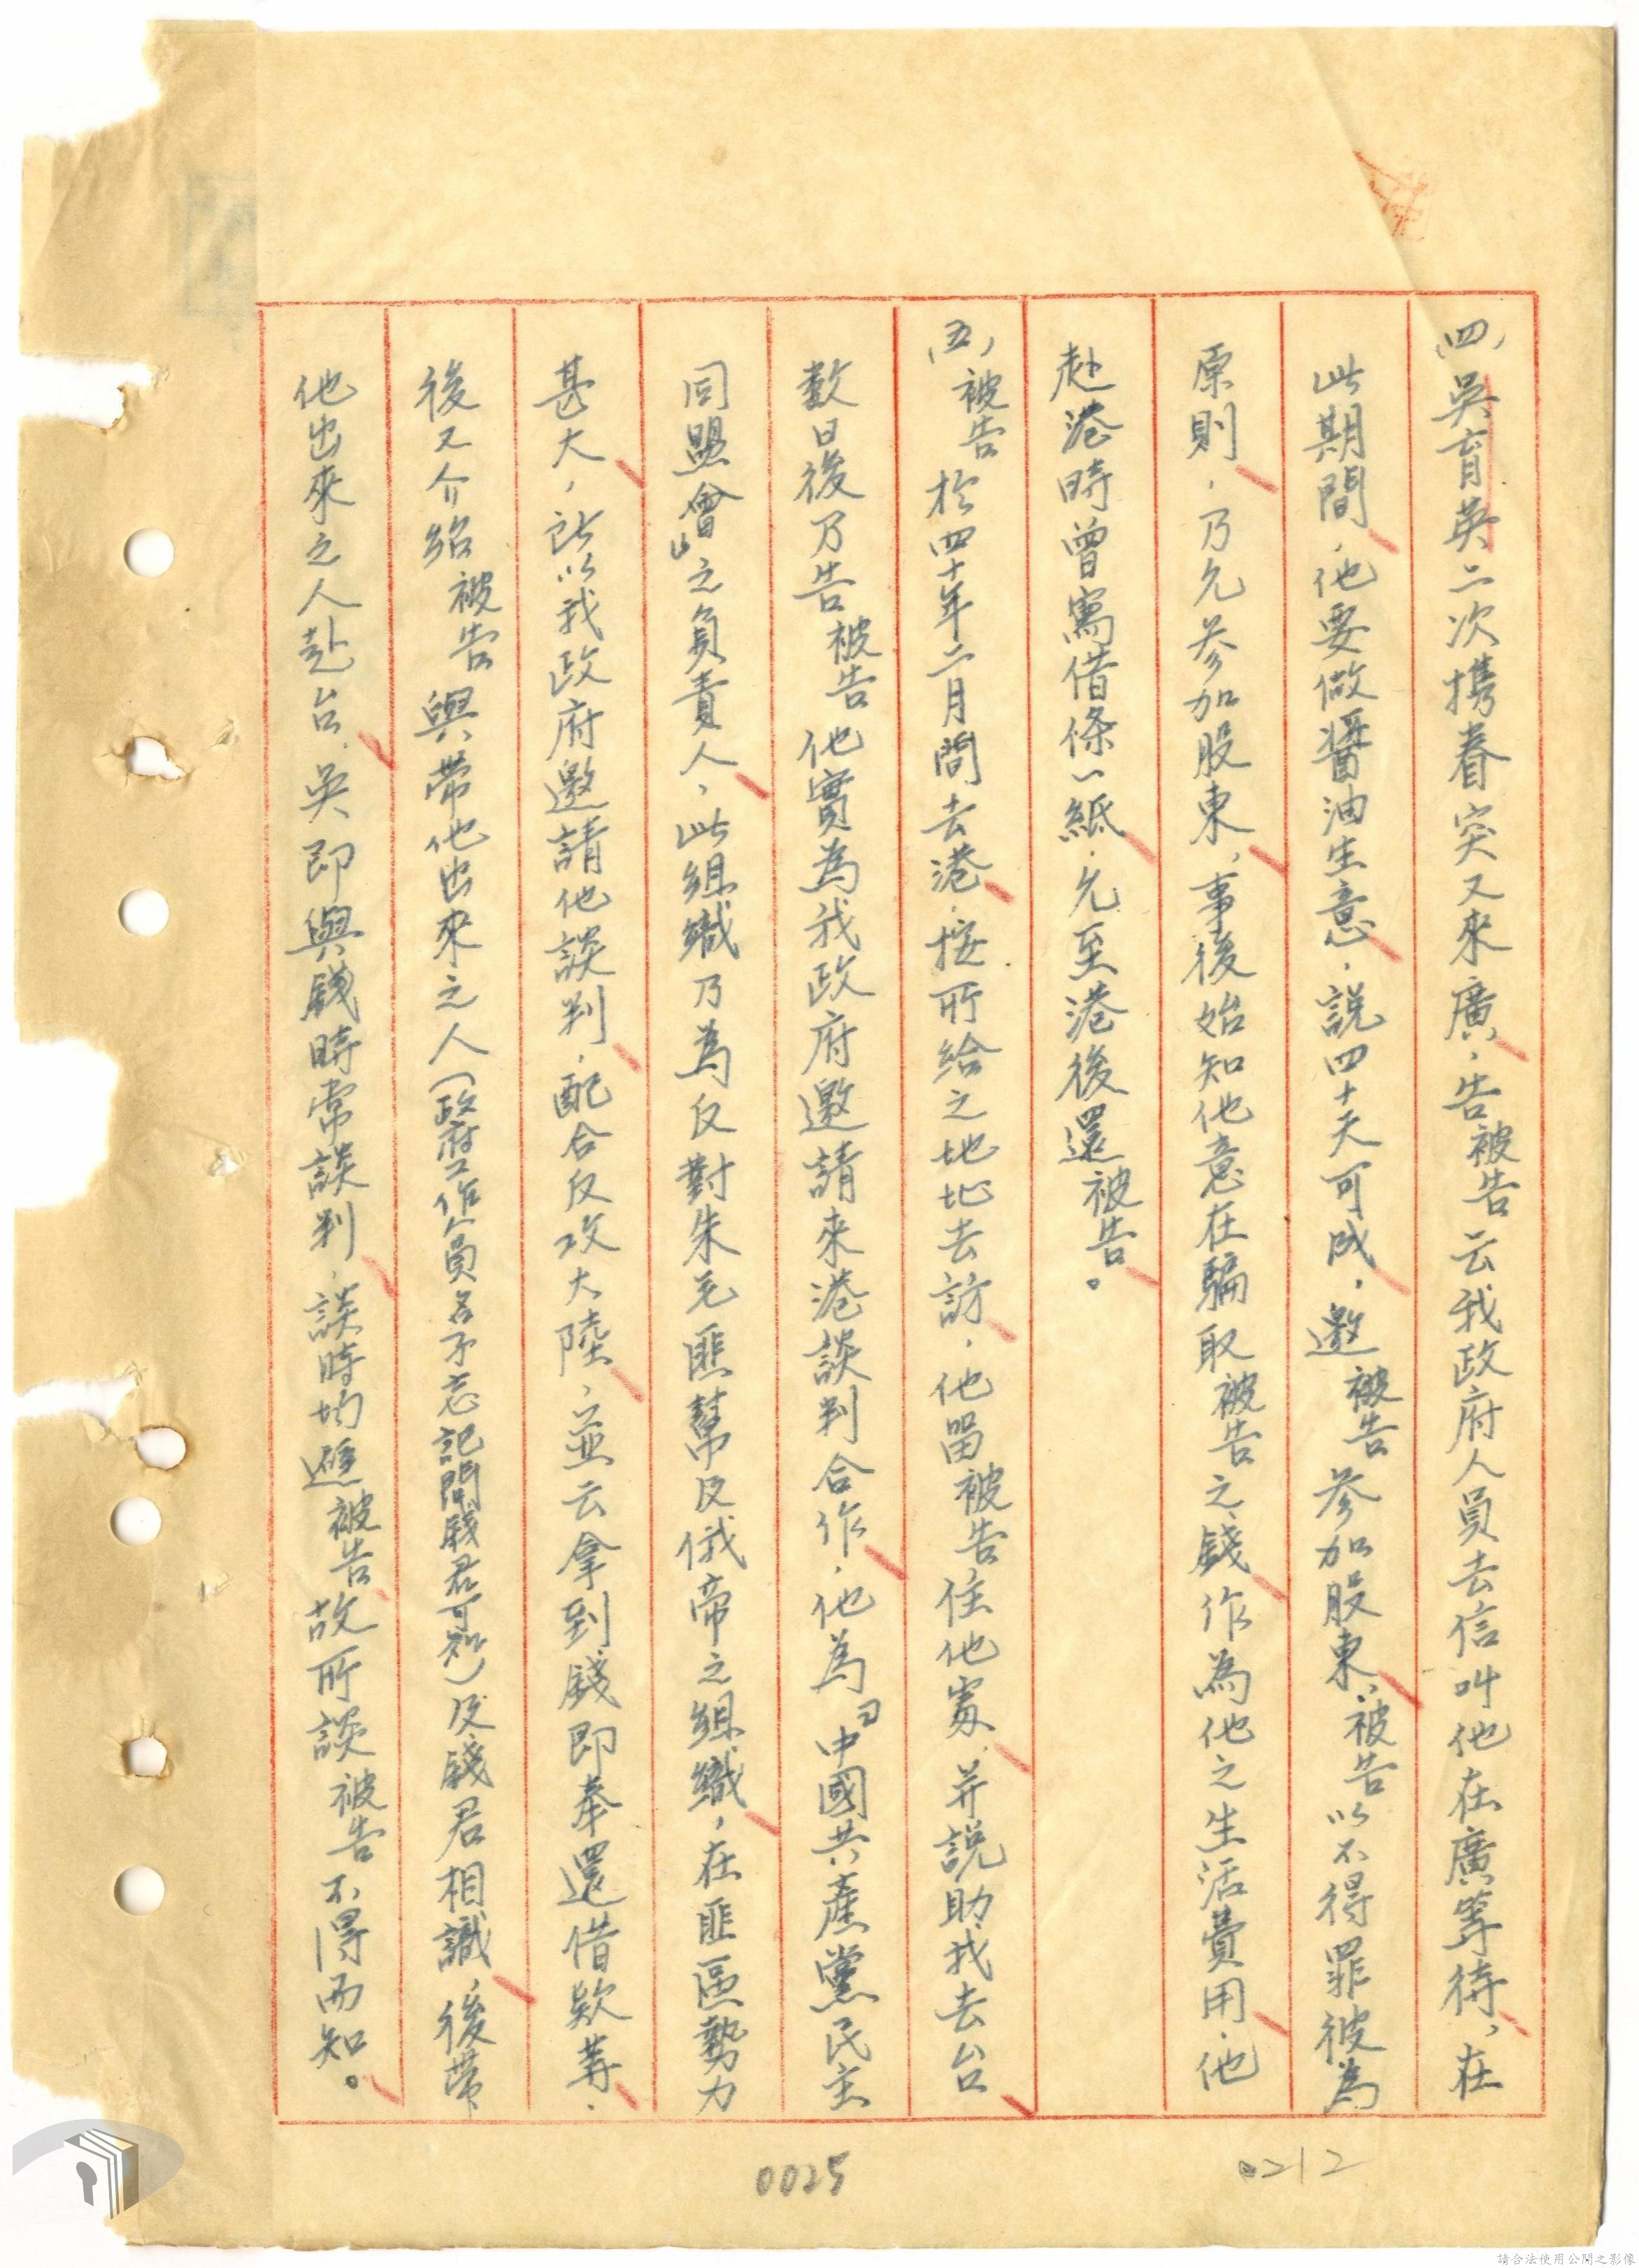 四、吳育英二次攜眷突又來廣，告被告云我政府人員去信叫他在廣等待，在
此期間，他要做醬油生意，說四十天可成，邀被告參加股東，被告以不得罪彼為
原則，乃允參加股東，事後始知他意在騙取被告之錢作為他之生活費用，他
赴港時曾寫借條一紙，允至港後還被告。
五、被告於四十年二月間去港，按所給之地址去訪，他留被告住他家，并說助我去台
數日後乃告被告他實為我政府邀請來港談判合作，他為「中國共產黨民主
同盟會」之負責人，此組織乃為反對朱毛匪幫及俄帝之組織，在匪區勢力
甚大，所以我政府邀請他談判，配合反攻大陸，並云拿到錢即奉還借欵等，
後又介紹被告與帶他出來之人（政府工作人員名子忘記問錢君可知）及錢君相識，後帶
他出來之人赴台，吳即與錢時常談判，談時均避被告故所談被告不得而知。
0025
0212
請合法使用公開之影像